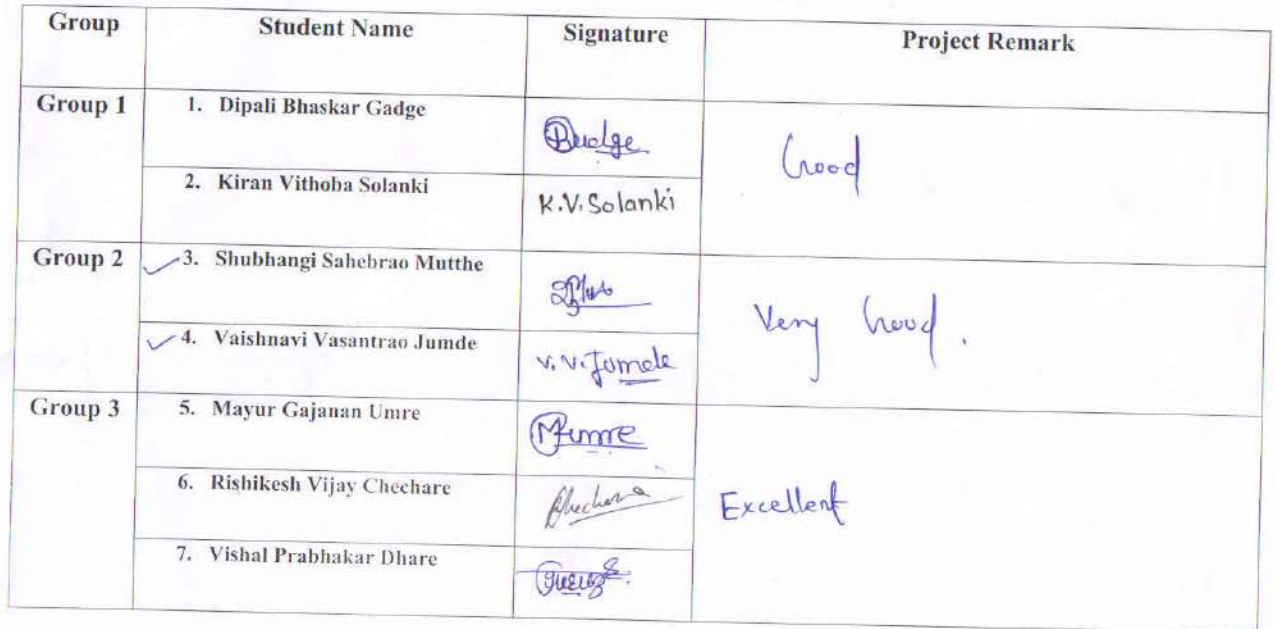 Group Student Name Signature Project Remark
Group 1 1. Dipali Bhaskar Gadge
Good
2. Kiran Vithoba Solanki K.V. Solanki
Group 2 3. Shubhangi Sahebrao Mutthe
Very Good.
4. Vaishnavi Vasantrao Jumde V. V. Jumde
Group 3 5. Mayur Gajanan Umre Mumre
6. Rishikesh Vijay Chechare Chechare
Excellent
7. Vishal Prabhakar Dhare